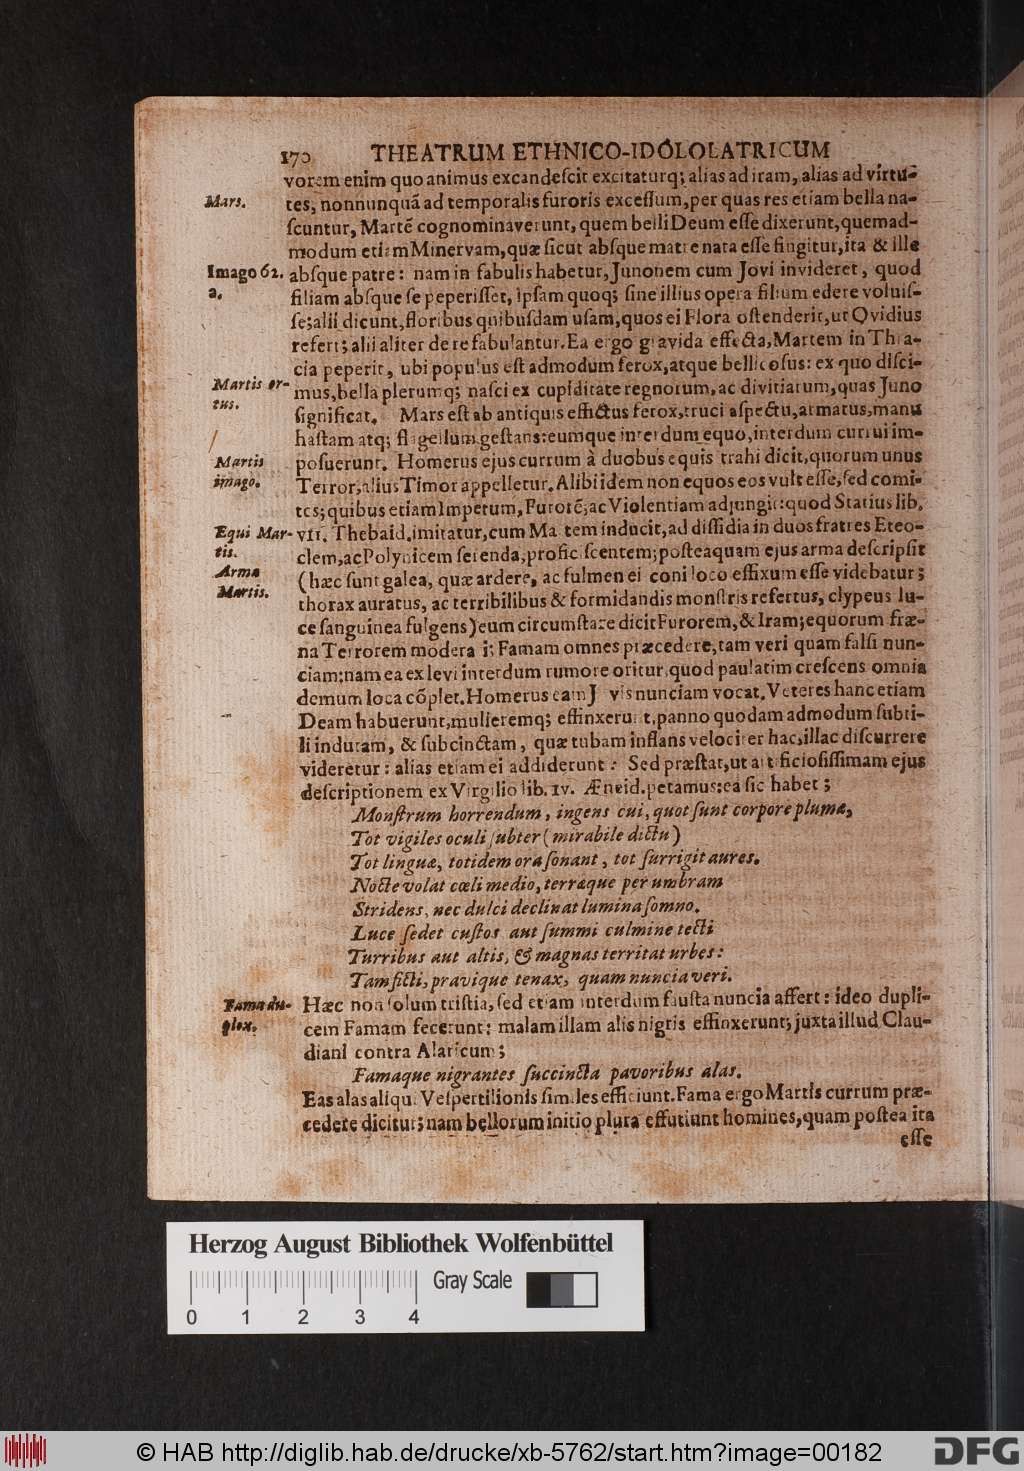 170 THEATRUM ETHNICO-IDOLOLATRICUM
vorem enim quo animus excandeſcit excitaturq; alias ad iram, alias ad virtu-
Mars.
tes, nonnunquã ad temporalis furoris exceſſum, per quas res etiam bella na-
ſcuntur, Martẽ cognominaverunt, quem belli Deum eſſe dixerunt, quemad-
modum etiam Minervam, quæ ſicut abſque matre nata eſſe fingitur, ita & ille
Imago 62.
a.
abſque patre: nam in fabulis habetur, Junonem cum Jovi invideret, quod
filiam abſque ſe peperiſſet, ipſam quoq; ſine illius opera filium edere voluiſ-
ſe; alii dicunt, floribus quibuſdam uſam, quos ei Flora oſtenderit, ut Ovidius
refert; alii aliter de re fabulantur. Ea ergo gravida effecta, Martem in Thra-
cia peperit, ubi populus eſt admodum ferox, atque bellicoſus: ex quo diſci-
Martis or-
tus.
mus, bella plerumq; naſci ex cupiditate regnorum, ac divitiarum, quas Juno
ſignificat. Mars eſt ab antiquis effictus ferox, truci aſpectu, armatus, manu
haſtam atq; flagellum geſtans: eumque interdum equo, interdum currui im-
Martis
imago.
poſuerunt. Homerus ejus currum à duobus equis trahi dicit, quorum unus
Terror, alius Timor appelletur. Alibi idem non equos eos vult eſſe, ſed comi-
tes; quibus etiam Impetum, Furorẽ, ac Violentiam adjungit: quod Statius lib.
Equi Mar-
tis.
VII. Thebaid. imitatur, cum Martem inducit, ad diſſidia in duos fratres Eteo-
clem, ac Polynicem ſerenda, proficiſcentem; poſteaquam ejus arma deſcripſit
Arma
Martis.
(hæc ſunt galea, quæ ardere, ac fulmen ei coni loco effixum eſſe videbatur;
thorax auratus, ac terribilibus & formidandis monſtris refertus, clypeus lu-
ce ſanguinea fulgens) eum circumſtare dicit Furorem, & Iram; equorum fræ-
na Terrorem moderari; Famam omnes præcedere, tam veri quam falſi nun-
ciam: nam ea ex levi interdum rumore oritur, quod paulatim creſcens omnia
demum loca cõplet. Homerus eam Jovis nunciam vocat. Veteres hanc etiam
Deam habuerunt, mulieremq; effinxerunt, panno quodam admodum ſubti-
li indutam, & ſubcinctam, quæ tubam inflans velociter hac, illac diſcurrere
videretur: alias etiam ei addiderunt: Sed præſtat, ut artificioſiſſimam ejus
deſcriptionem ex Virgilio lib. IV. Æneid. petamus: ea ſic habet;
Monſtrum horrendum, ingens cui, quot ſunt corpore plumæ,
Tot vigiles oculi ſubter (mirabile dictu)
Tot linguæ, totidem ora ſonant, tot ſurrigit aures.
Nocte volat cœli medio, terræque per umbram
Stridens, nec dulci declinat lumina ſomno.
Luce ſedet cuſtos aut ſummi culmine tecti
Turribus aut altis, & magnas territat urbes:
Tam ficti, pravique tenax, quam nuncia veri.
Fama du-
plex.
Hæc non ſolum triſtia, ſed etiam interdum fauſta nuncia affert: ideo dupli-
cem Famam fecerunt: malam illam alis nigris effinxerunt; juxta illud Clau-
diani contra Alaricum;
Famaque nigrantes ſuccincta pavoribus alas.
Eas alas aliqui Veſpertilionis ſimiles efficiunt. Fama ergo Martis currum præ-
cedere dicitur; nam bellorum initio plura effutiunt homines, quam poſtea ita
eſſe
Herzog August Bibliothek Wolfenbüttel
Gray Scale
0 1 2 3 4
© HAB http://diglib.hab.de/drucke/xb-5762/start.htm?image=00182
DFG